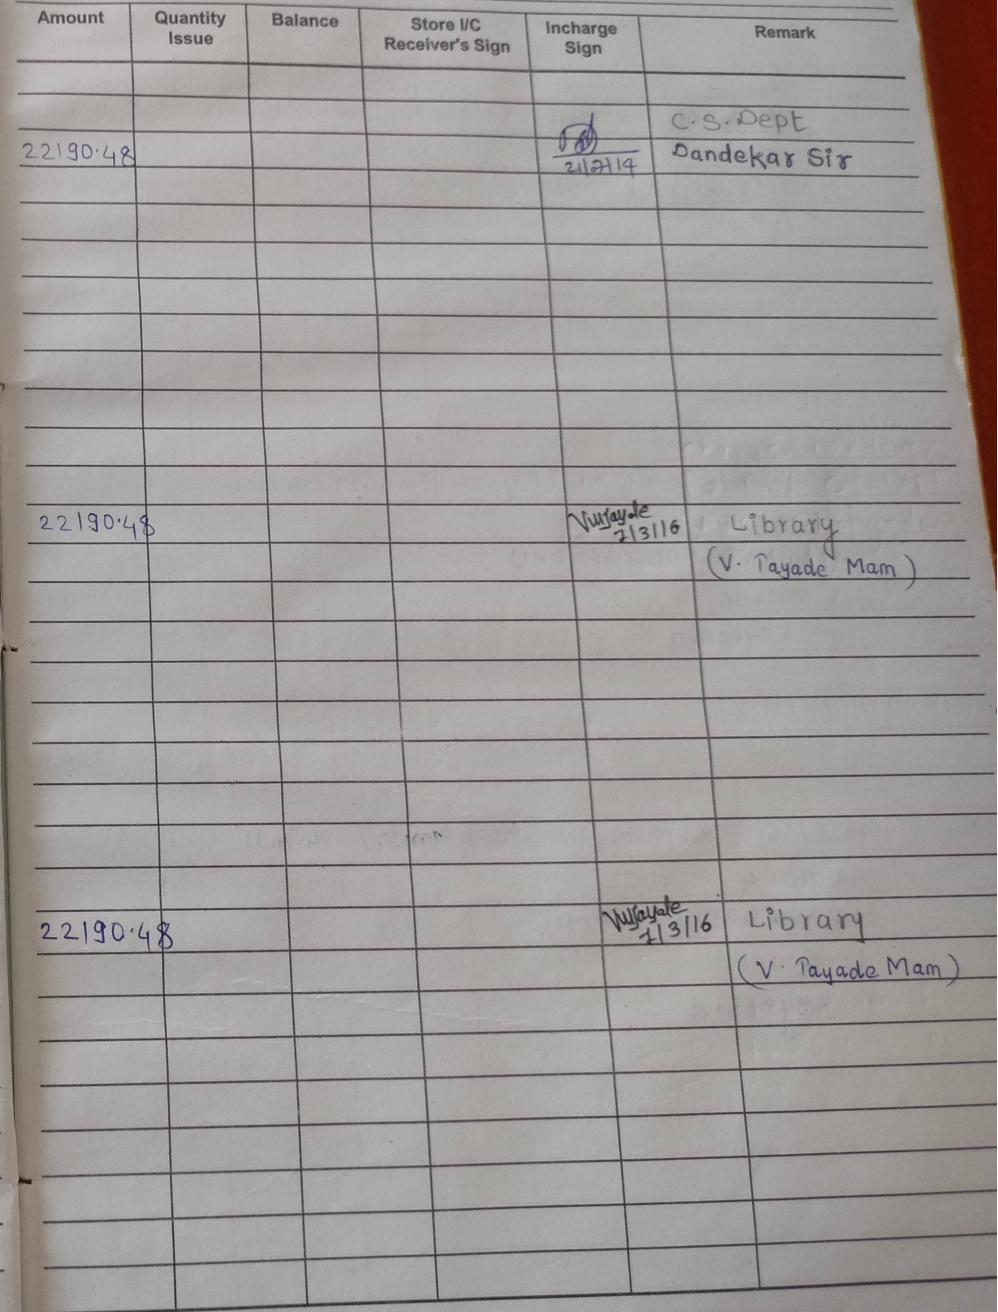 Amount Quantity Issue Balance Store I/C Receiver's Sign Incharge Sign Remark
C.S. Dept
22190.48 Dandekar Sir
22190.48 7/3/16 Library
(V. Tayade Mam)
22190.48 7/3/16 Library
(V. Tayade Mam)